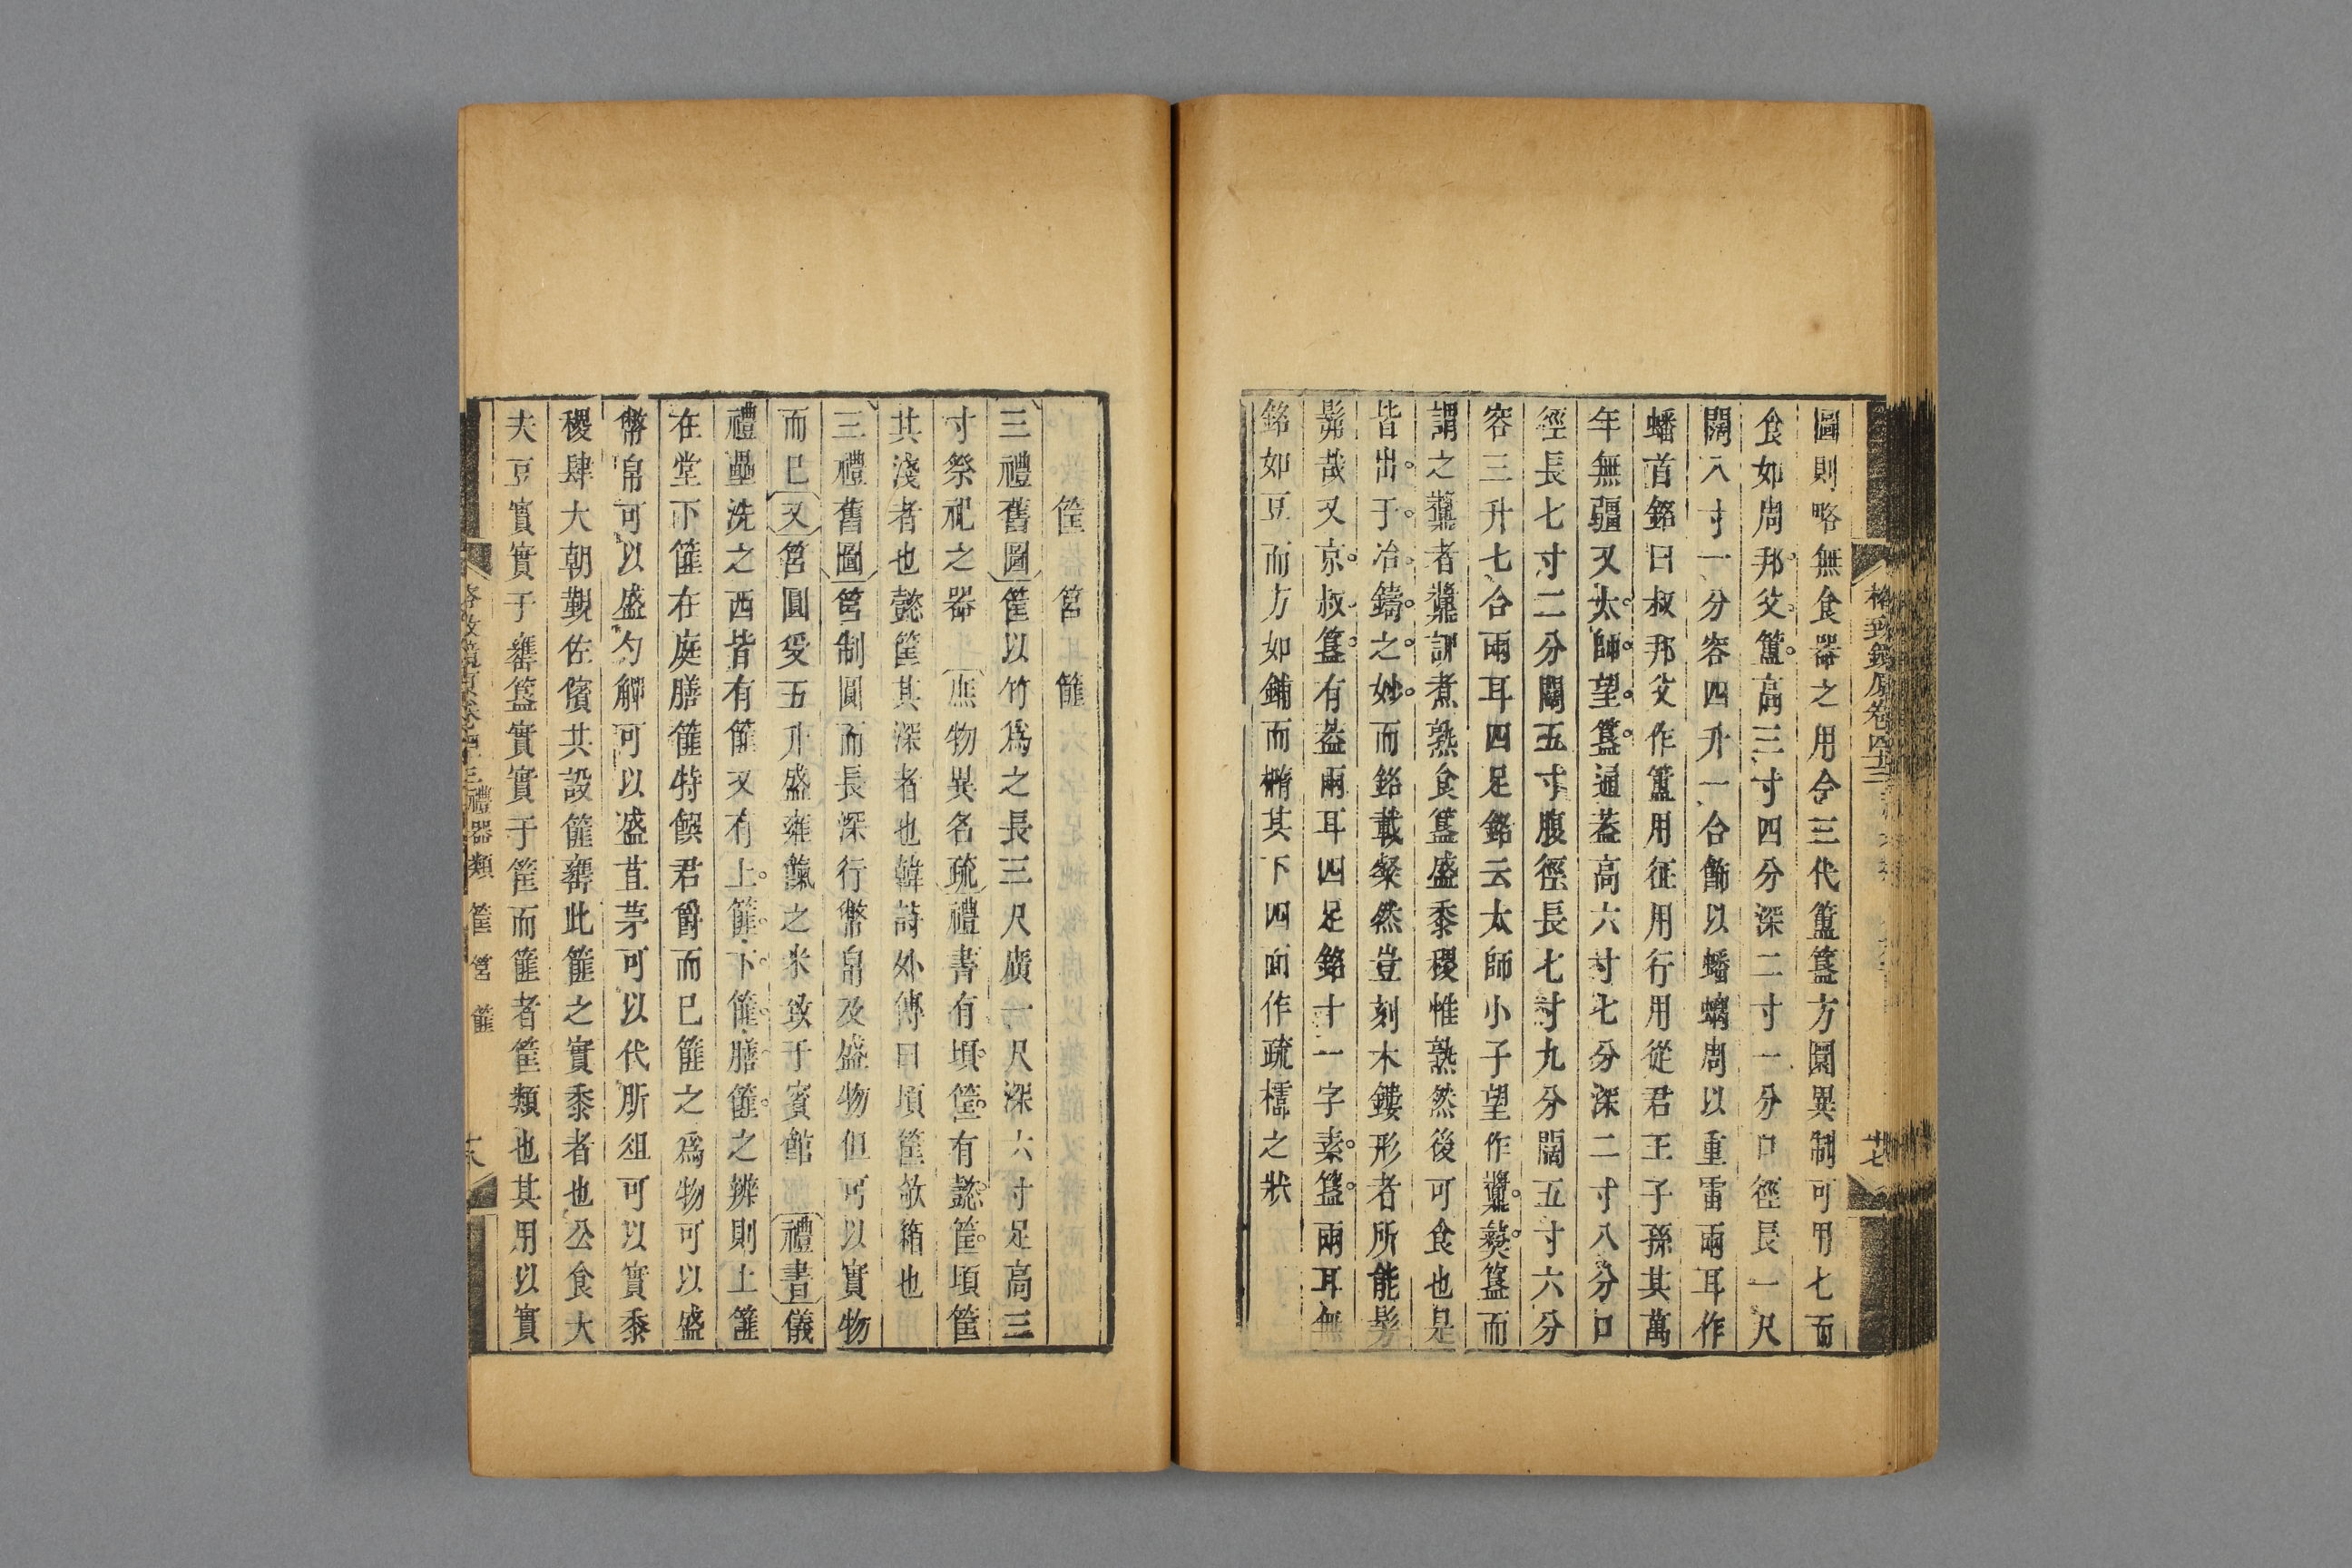 格致鏡原卷四十三
十七
圖則略無食器之用今三代簠簋方圓異制可用七而
食如周邦父簠高三寸四分深二寸一分口徑長一尺
闊八寸一分容四升一合飾以蟠螭周以重雷兩耳作
蟠首銘曰叔邦父作簠用征用行用從君王子孫其萬
年無疆又太師望簋通葢高六寸七分深二寸八分口
徑長七寸二分闊五寸腹徑長七寸九分闊五寸六分
容三升七合兩耳四足銘云太師小子望作䵼彝簋而
謂之䵼者䵼謂煮熟食簋盛黍稷惟熟然後可食也是
皆出于冶鑄之妙而銘載粲然豈刻木鏤形者所能髣
髴哉又京叔簋有葢兩耳四足銘十一字素簋兩耳無
銘如豆而方如鋪而橢其下四面作疏櫺之狀
筐 筥 篚
三禮舊圖筐以竹爲之長三尺廣一尺深六寸足高三
寸祭祀之器 庶物異名疏禮書有頃筐有懿筐頃筐
其淺者也懿筐其深者也韓詩外傳曰頃筐欹箱也
三禮舊圖筥制圓而長深行幣帛及盛物但可以實物
而已又筥圓受五升盛饔餼之米致于賓館 禮書儀
禮罍洗之西皆有篚又有上篚下篚膳篚之辨則上篚
在堂下篚在庭膳篚特饌君爵而已篚之爲物可以盛
幣帛可以盛勺觶可以盛苴茅可以代肵俎可以實黍
稷肆大朝覲佐儐共設篚罋此篚之實黍者也公食大
夫豆實實于罋簋實實于筐而篚者筐類也其用以實
格致鏡原卷四十三 禮器類 筐 筥 篚
十八